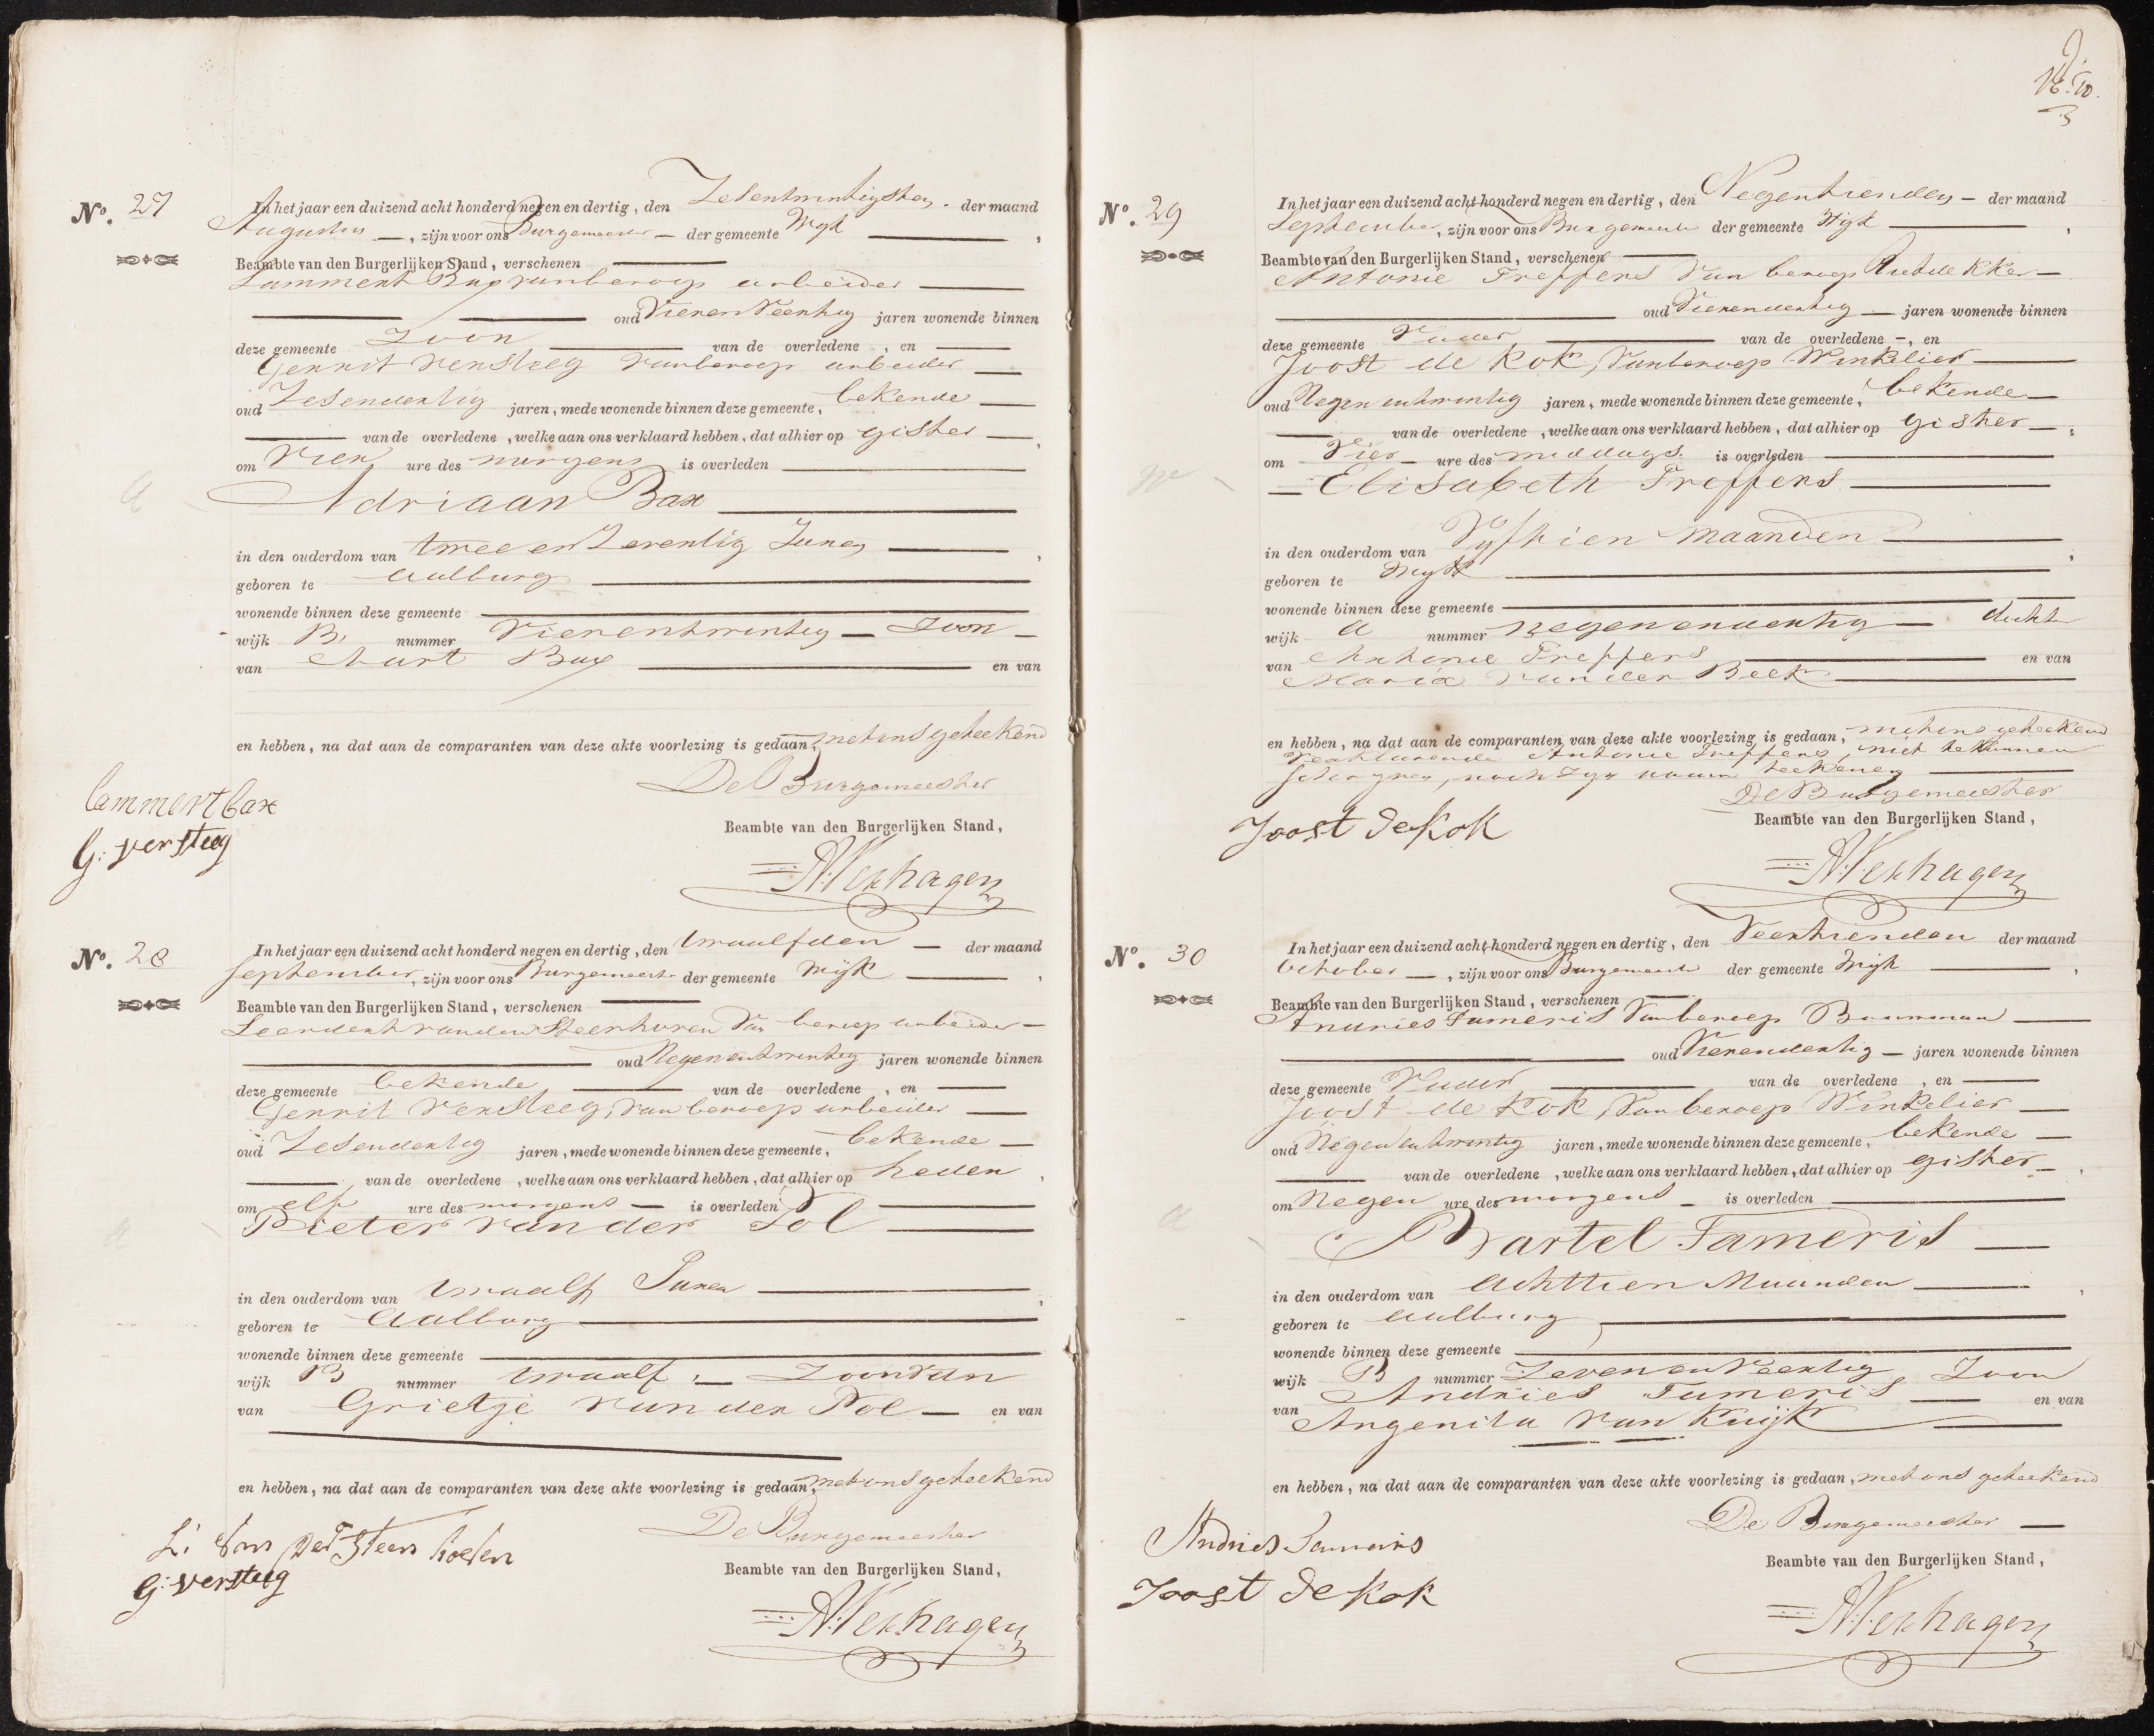 No. 27
In het jaar een duizend acht honderd negen en dertig, den Zesentwintigsten der maand
Augustus, zijn voor ons Burgemeester der gemeente Wijk,
Beambte van den Burgerlijken Stand, verschenen
Lammert Bax van beroep arbeider
oud Vieren Veertig jaren wonende binnen
deze gemeente Zoon van de overledene, en
Gerrit Versteeg van beroep arbeider
oud Zesendertig jaren, mede wonende binnen deze gemeente, bekende
van de overledene, welke aan ons verklaard hebben, dat alhier op gister,
om Vier ure des morgens is overleden
Adriaan Bax
in den ouderdom van twee en Zeventig Jaren,
geboren te Aalburg
wonende binnen deze gemeente
wijk B, nummer Vierentwintig Zoon
van Aart Bax en van
en hebben, na dat aan de comparanten van deze akte voorlezing is gedaan, met ons geteekend
De Burgemeester
Lammert bax
G: versteeg
Beambte van den Burgerlijken Stand,
A. Verhagen
No. 28
In het jaar een duizend acht honderd negen en dertig, den twaalfden der maand
September, zijn voor ons Burgemeester der gemeente Wijk,
Beambte van den Burgerlijken Stand, verschenen
Leendert van den Steenhoven Van beroep arbeider
oud Negenentwintig jaren wonende binnen
deze gemeente bekende van de overledene, en
Gerrit Versteeg, van beroep arbeider
oud Zesendertig jaren, mede wonende binnen deze gemeente, bekende
van de overledene, welke aan ons verklaard hebben, dat alhier op heden,
om elf ure des morgens is overleden
Pieter van der Pol
in den ouderdom van twaalf Jaren,
geboren te Aalburg
wonende binnen deze gemeente
wijk B nummer twaalf, Zoon van
van Grietje van der Pol en van
en hebben, na dat aan de comparanten van deze akte voorlezing is gedaan, met ons geteekend
De Burgemeester
L: van Der Steen hoeven
G: versteeg
Beambte van den Burgerlijken Stand,
A. Verhagen
No. 29
In het jaar een duizend acht honderd negen en dertig, den Negentienden der maand
September, zijn voor ons Burgemeester der gemeente Wijk,
Beambte van den Burgerlijken Stand, verschenen
Antonie Treffers Van beroep Rietdekker
oud Vierendertig jaren wonende binnen
deze gemeente Vader van de overledene, en
Joost de Kok, Van beroep Winkelier
oud Negen entwintig jaren, mede wonende binnen deze gemeente, bekende
van de overledene, welke aan ons verklaard hebben, dat alhier op gister,
om Vier ure des middags is overleden
Elisabeth Treffers
in den ouderdom van Vyftien maanden,
geboren te Wyk
wonende binnen deze gemeente
wijk A nummer negenendertig docht
van Antonie Treffers en van
Maria van der Beek
en hebben, na dat aan de comparanten van deze akte voorlezing is gedaan, met ons geteekend
Verklarende Antonie Treffers, niet te kunnen
schryven, noch zyn naam teekenen
De Burgemeester
Joost de Kok
Beambte van den Burgerlijken Stand,
A. Verhagen
No. 30
In het jaar een duizend acht honderd negen en dertig, den Veertienden der maand
October, zijn voor ons Burgemeester der gemeente Wijk,
Beambte van den Burgerlijken Stand, verschenen
Andries Tameris Van beroep Bouwman
oud Vierendertig jaren wonende binnen
deze gemeente Vader van de overledene, en
Joost de Kok, Van beroep Winkelier
oud Negen entwintig jaren, mede wonende binnen deze gemeente, bekende
van de overledene, welke aan ons verklaard hebben, dat alhier op gister,
om Negen ure des morgens is overleden
Bartel Tameris
in den ouderdom van achttien Maanden,
geboren te Aalburg
wonende binnen deze gemeente
wijk B nummer Zeven en Veertig Zoon
van Andries Tameris en van
Angenita van Kuijk
en hebben, na dat aan de comparanten van deze akte voorlezing is gedaan, met ons geteekend
De Burgemeester
Andries Tameris
Joost de Kok
Beambte van den Burgerlijken Stand,
A. Verhagen